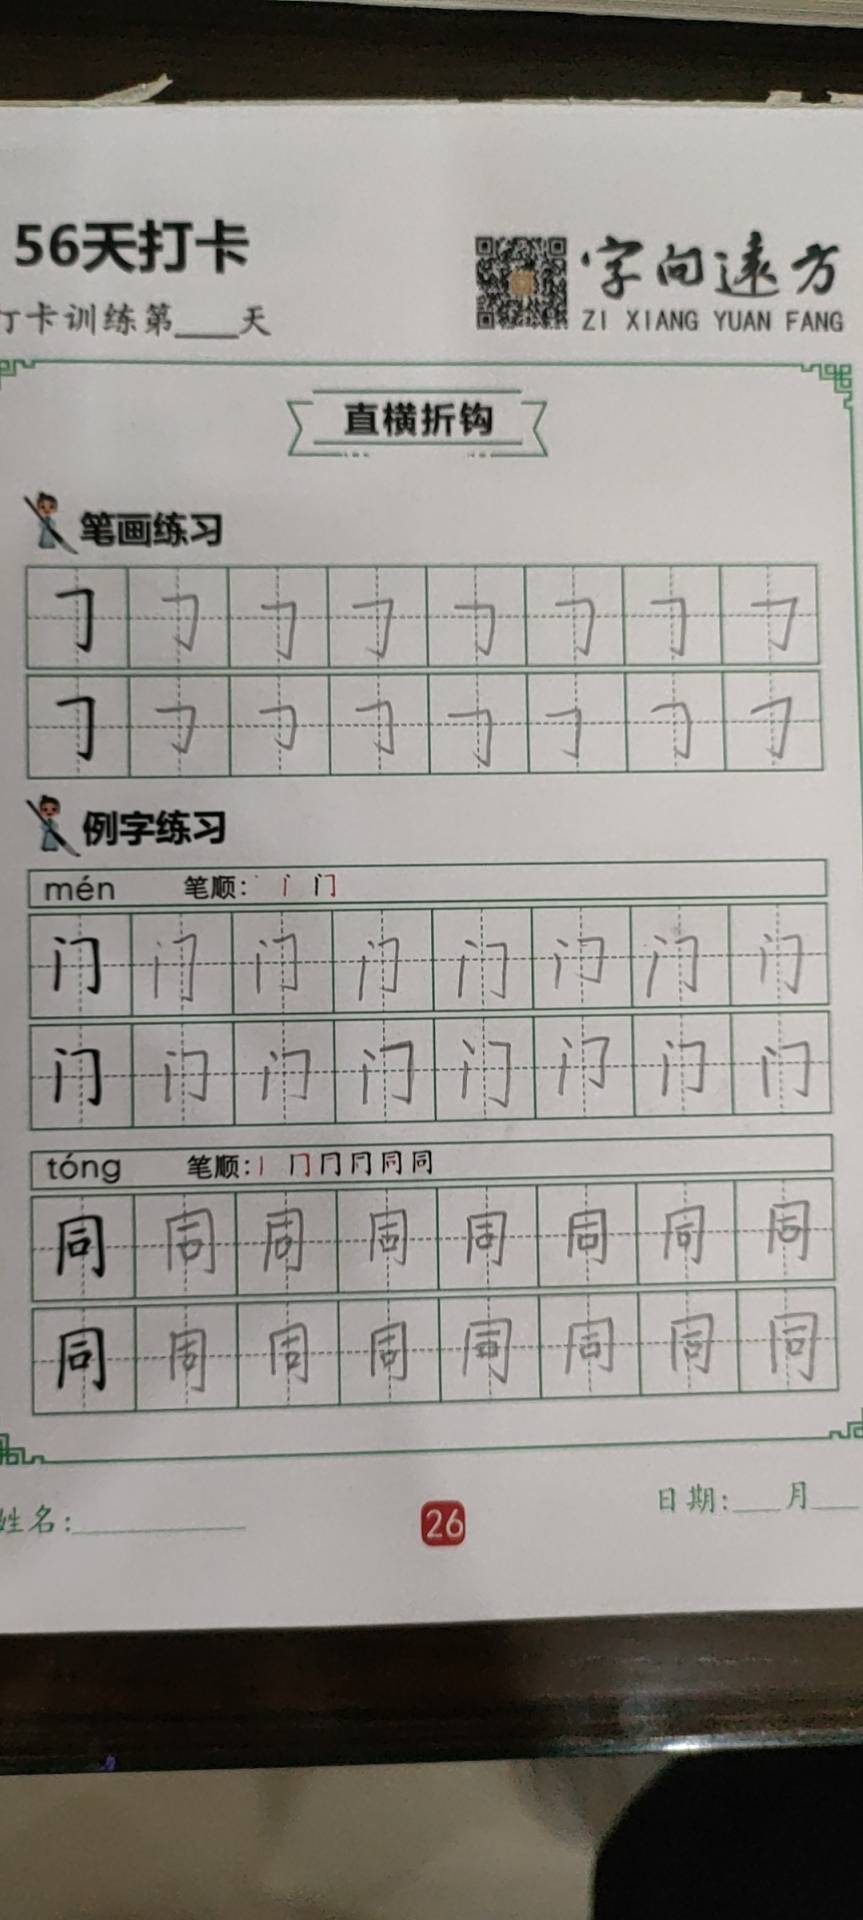 56天打卡
打卡训练第___天
字向遠方
ZI XIANG YUAN FANG
直横折钩
笔画练习
𠃌 𠃌 𠃌 𠃌 𠃌 𠃌 𠃌 𠃌
𠃌 𠃌 𠃌 𠃌 𠃌 𠃌 𠃌 𠃌
例字练习
mén 笔顺: 丶 门
门 门 门 门 门 门 门 门
门 门 门 门 门 门 门 门
tóng 笔顺: 丨 冂 同 同
同 同 同 同 同 同 同 同
同 同 同 同 同 同 同 同
姓名:
26
日期:___月___